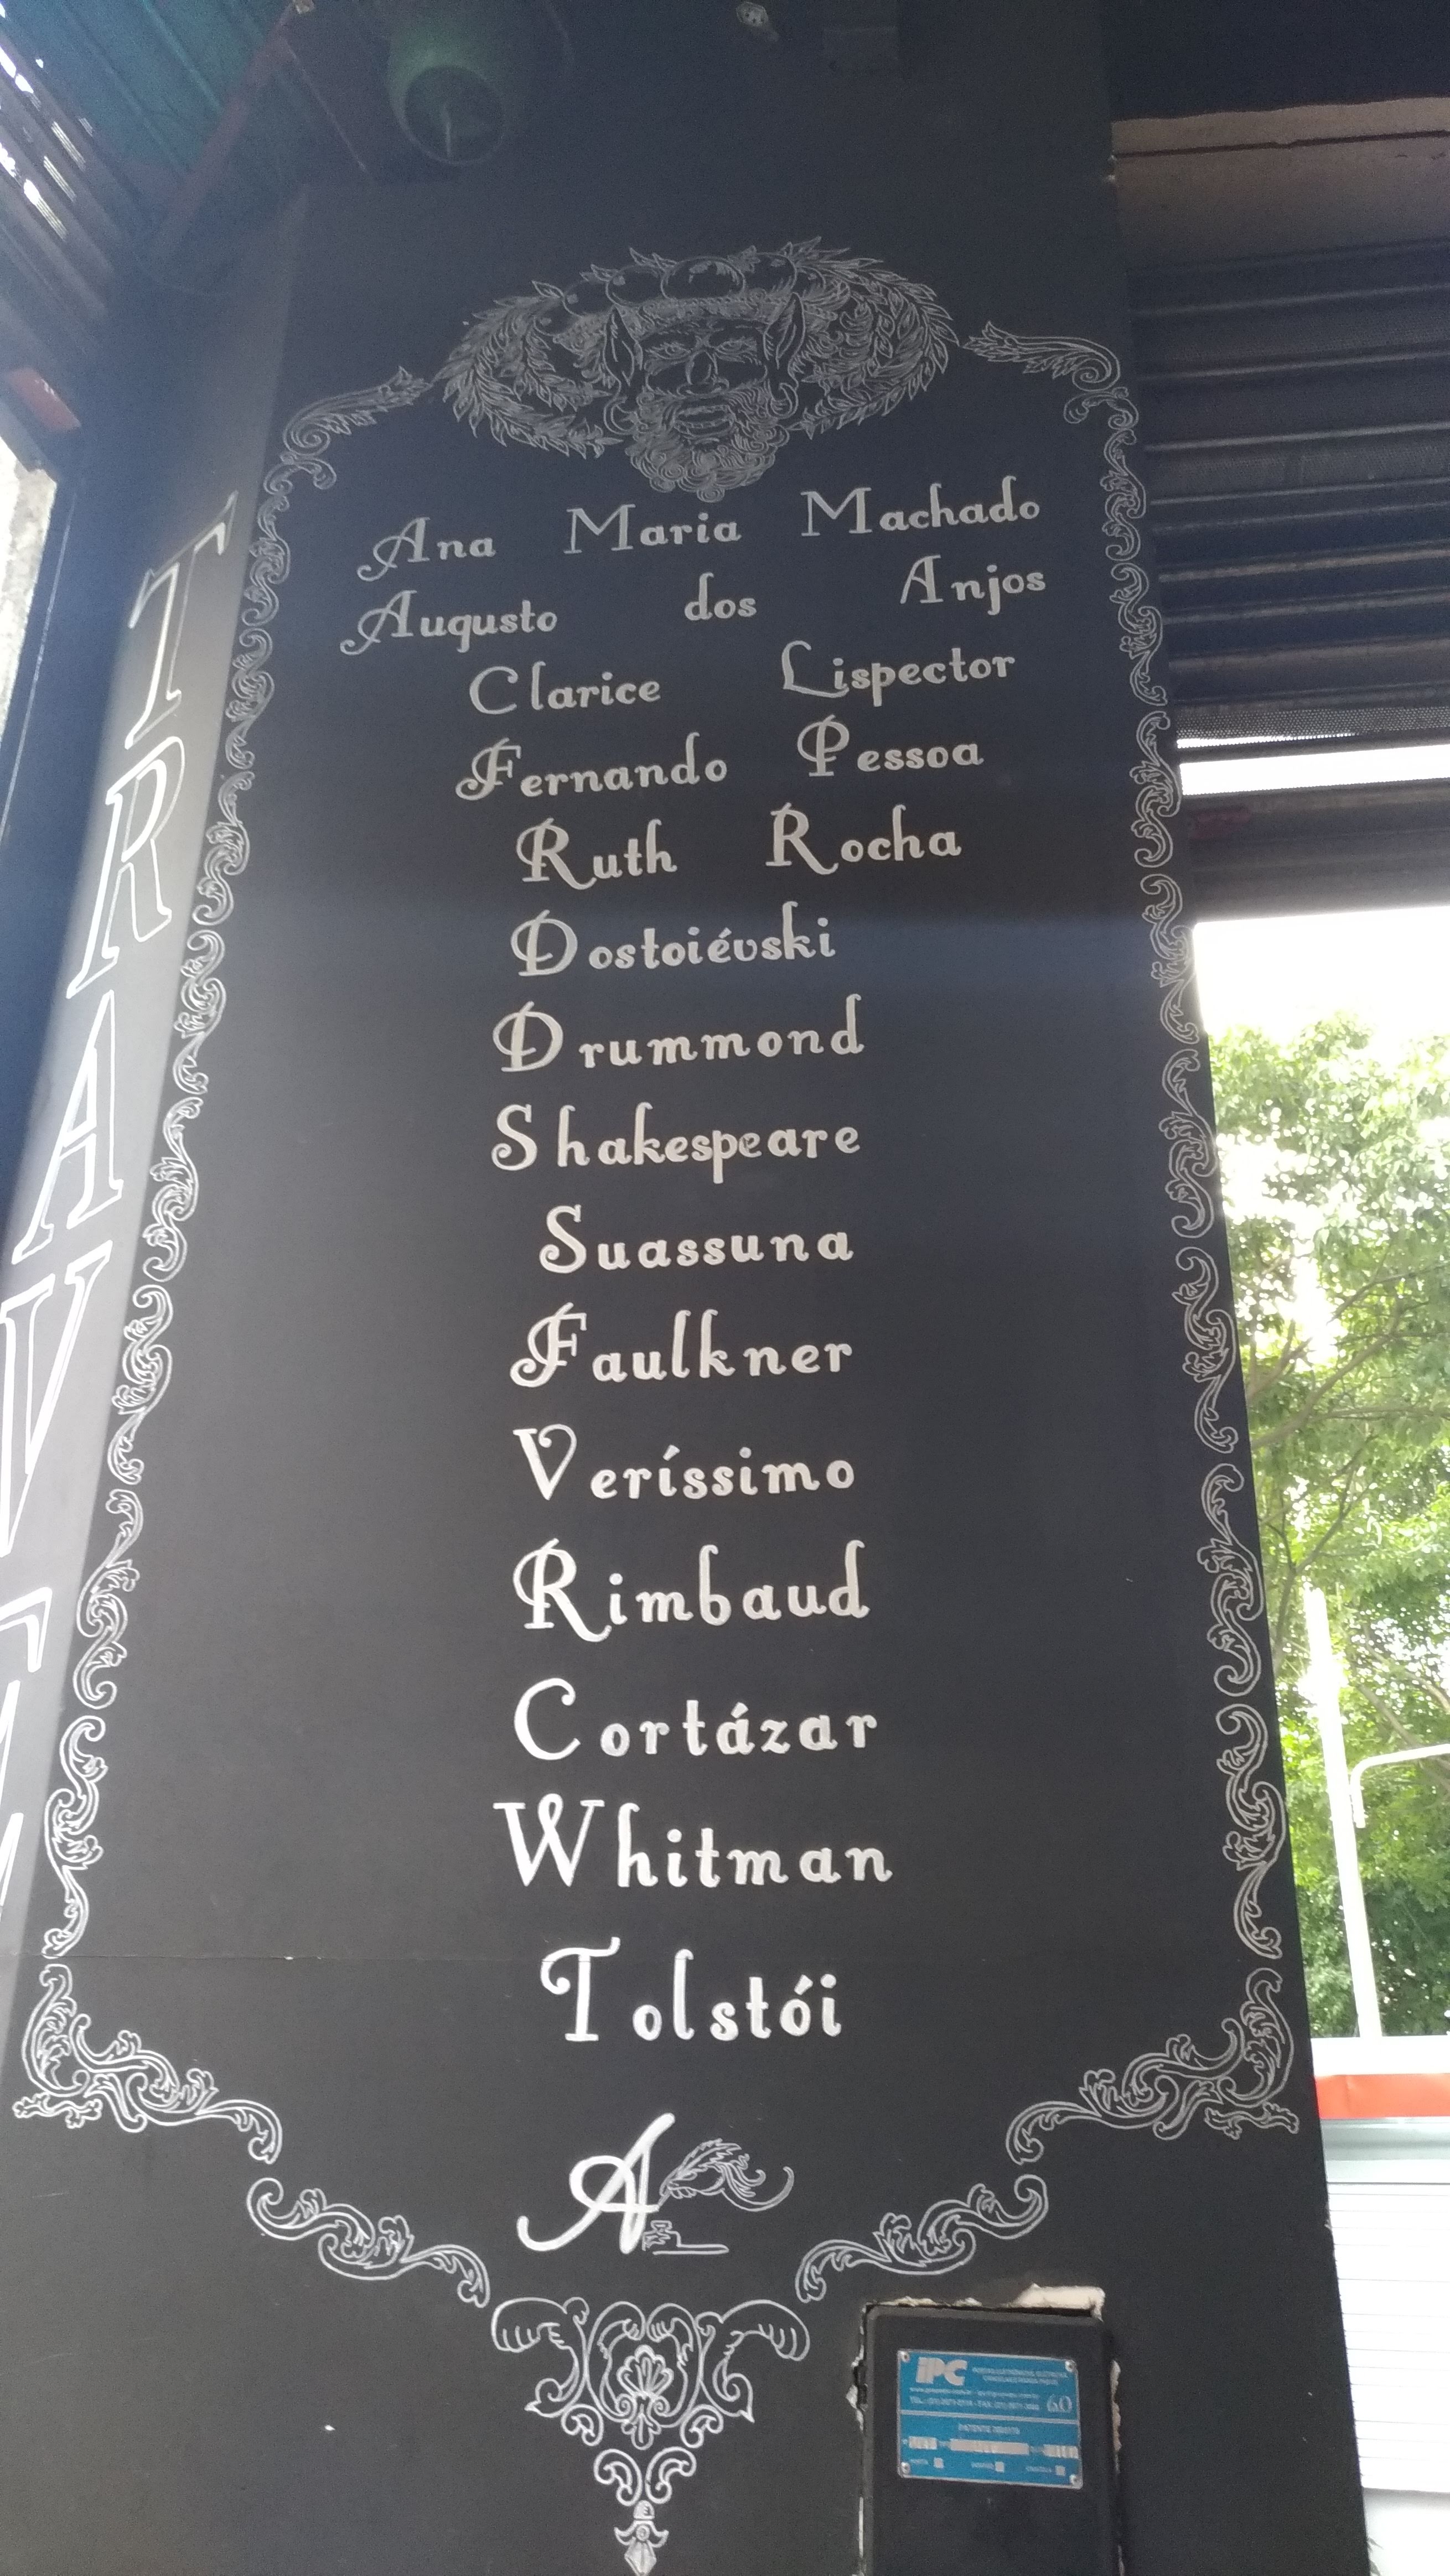 Ana Maria Machado
Augusto dos Anjos
Clarice Lispector
Fernando Pessoa
Ruth Rocha
Dostoiévski
Drummond
Shakespeare
Suassuna
Faulkner
Veríssimo
Rimbaud
Cortázar
Whitman
Tolstói
A
TRAV
IPC
60